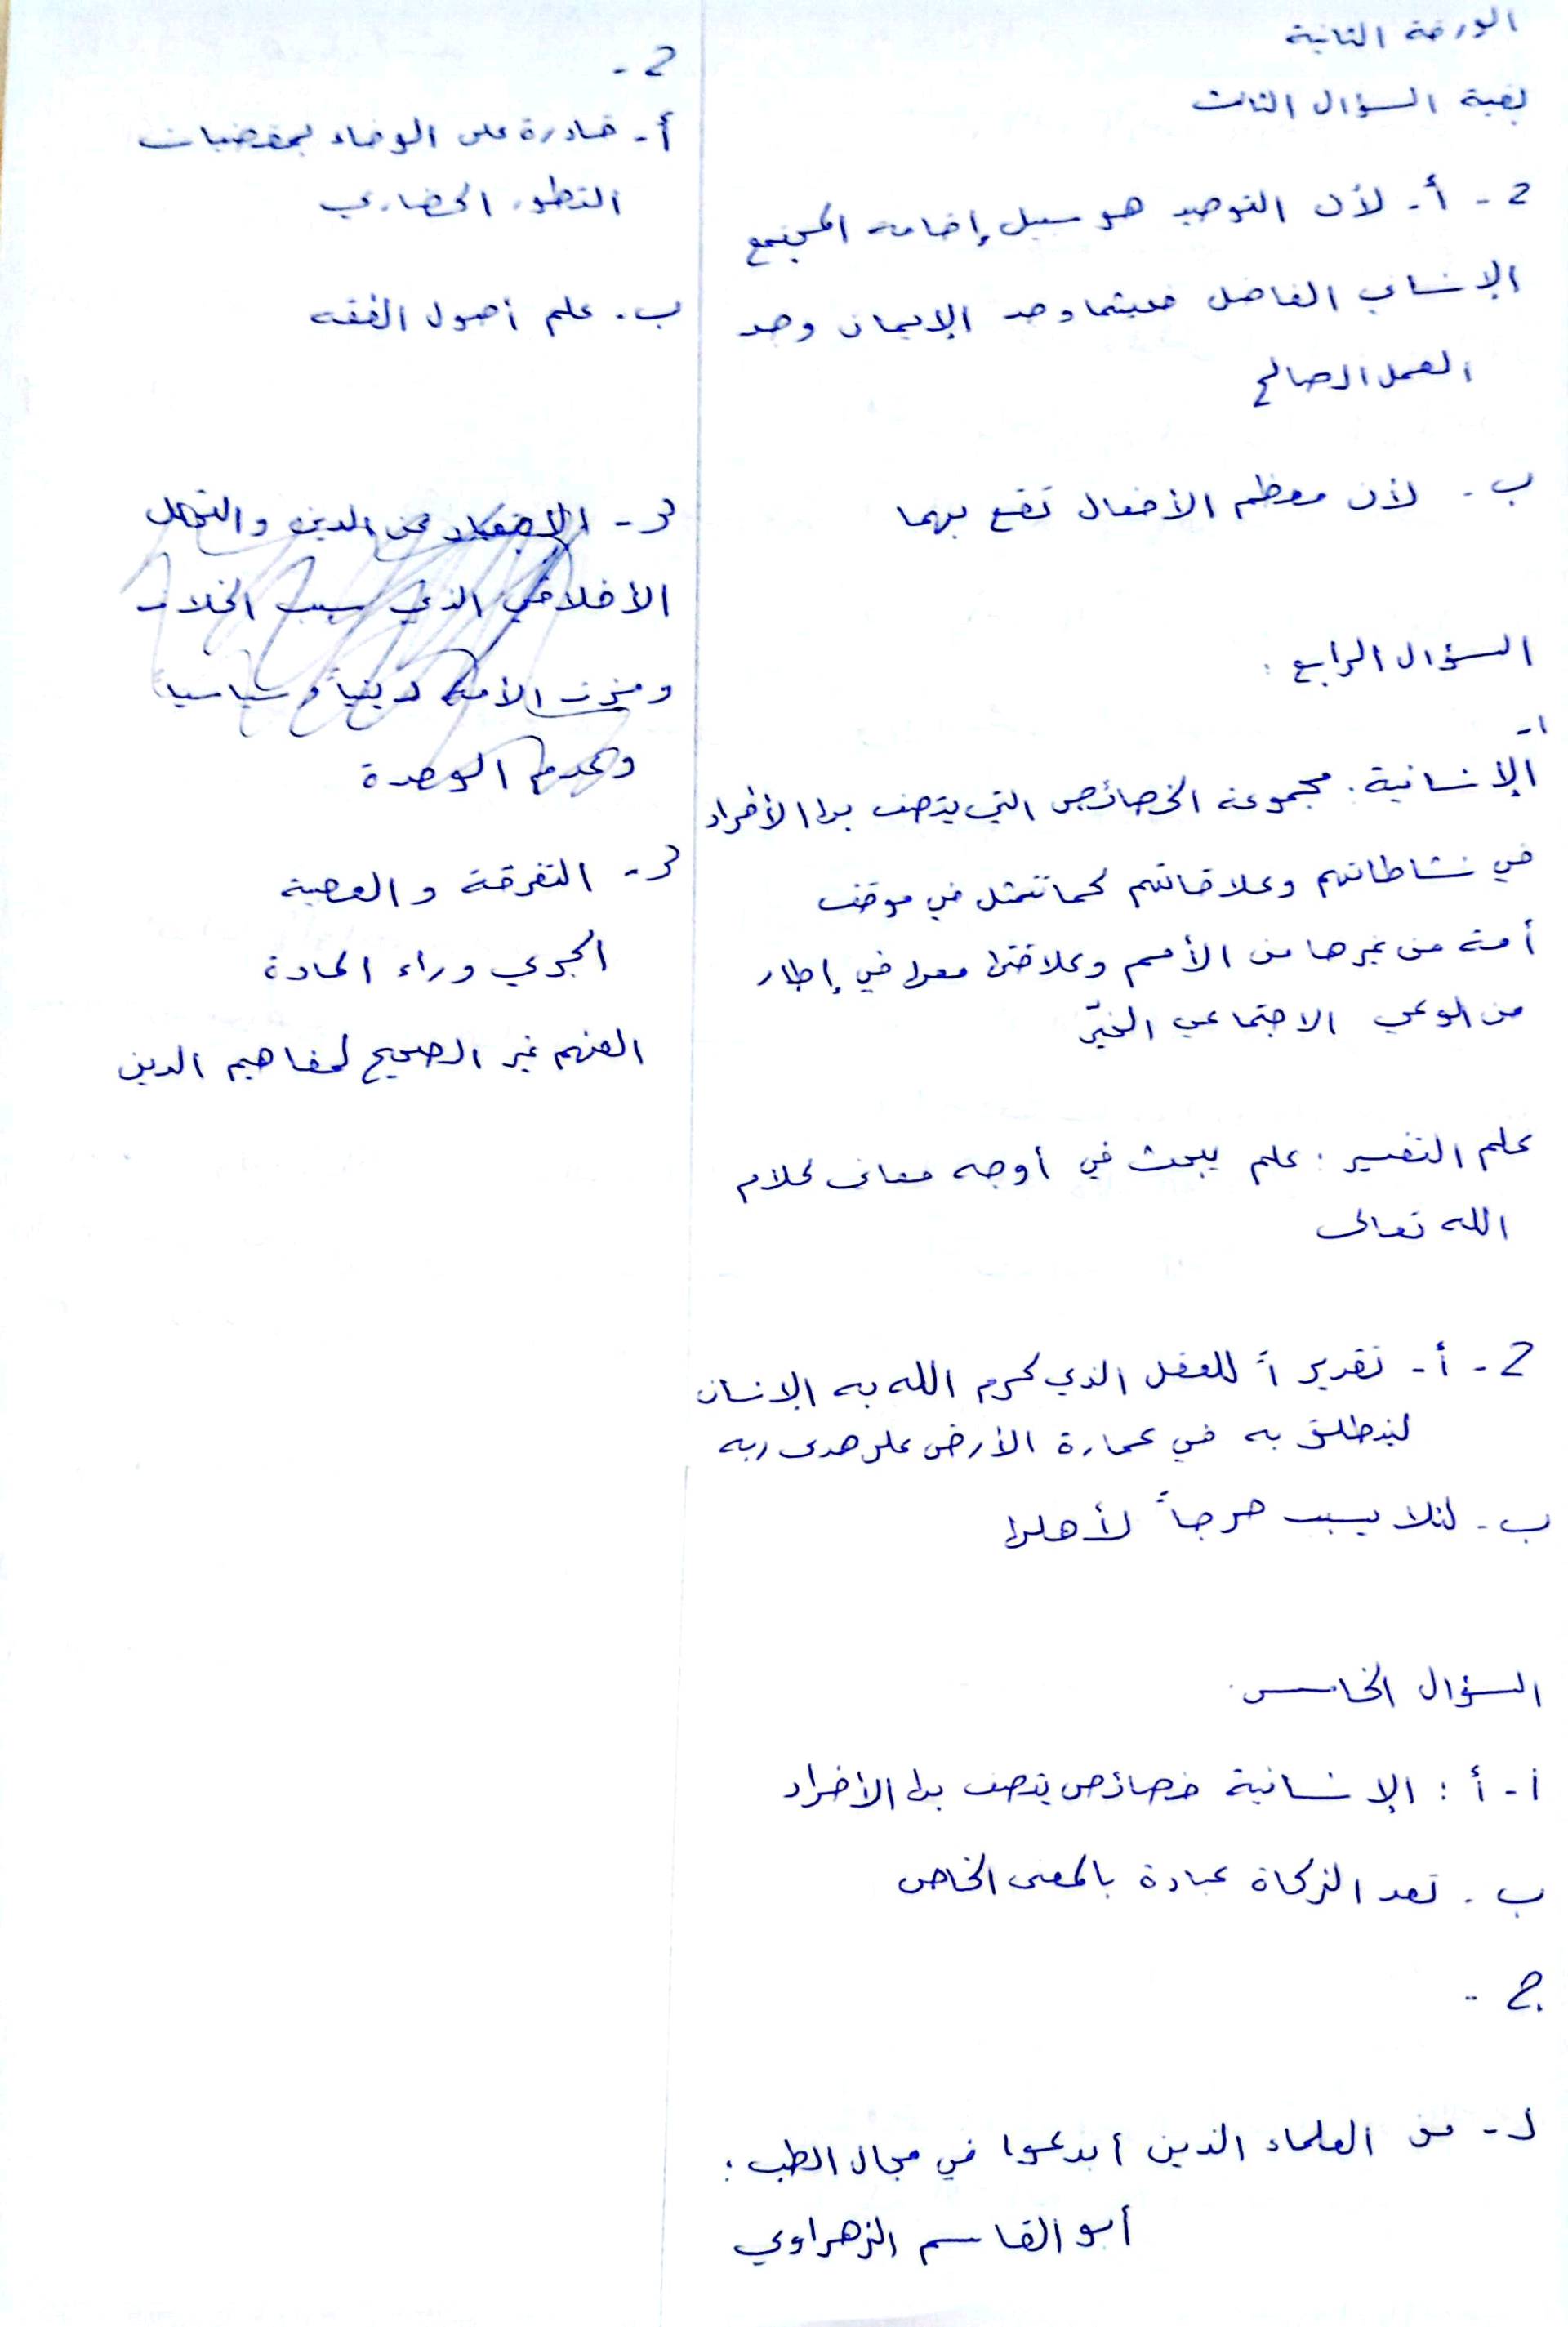 الورقة الثانية
بقية السؤال الثالث
2 - أ - لأن التوحيد هو سبيل إقامة المجتمع
الإنساني الفاضل فحيثما وجد الإيمان وجد
العمل الصالح
ب - لأن معظم الأفعال تقع بهما
السؤال الرابع :
1-
الإنسانية : مجموعة الخصائص التي يتصف بها الأفراد
في نشاطاتهم وعلاقاتهم كما تتمثل في موقف
أمة من غيرها من الأمم وعلاقتها معها في إطار
من الوعي الاجتماعي الخيّر
علم التفسير : علم يبحث في أوجه معاني كلام
الله تعالى
2 - أ - تقديراً للعقل الذي كرم الله به الإنسان
لينطلق به في عمارة الأرض على هدى ربه
ب - لئلا يسبب حرجاً لأهلها
السؤال الخامس :
1 - أ : الإنسانية خصائص يتصف بها الأفراد
ب - تعد الزكاة عبادة بالمعنى الخاص
ج -
د - من العلماء الذين أبدعوا في مجال الطب :
أبو القاسم الزهراوي
2 -
أ - قادرة على الوفاء بمقتضيات
التطور الحضاري
ب - علم أصول الفقه
3 - الابتعاد عن الدين والتحلل
الأخلاقي الذي سبب الخلاف
ومزق الأمة دينياً وسياسياً
وعدم الوحدة
3 - التفرقة والعصبية
الجري وراء المادة
الفهم غير الصحيح لمفاهيم الدين